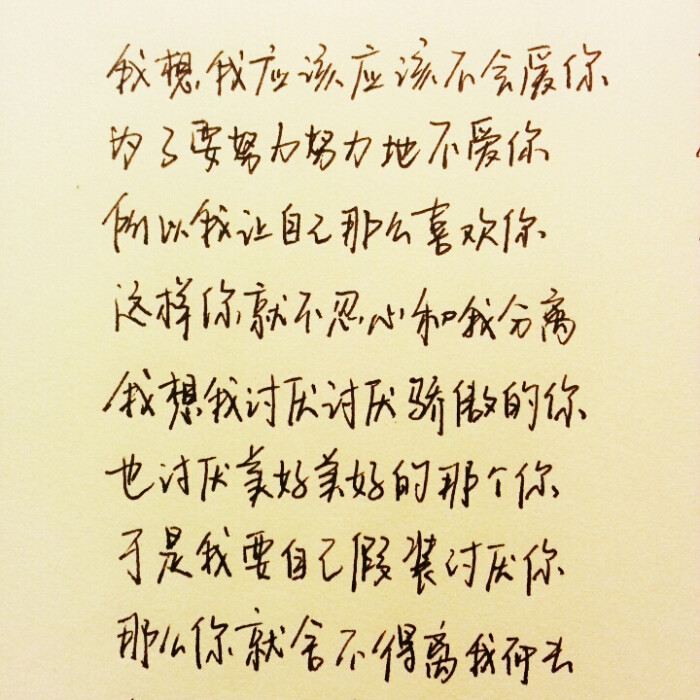 我想我应该应该不会爱你
为了要努力努力地不爱你
所以我让自己那么喜欢你
这样你就不忍心和我分离
我想我讨厌讨厌骄傲的你
也讨厌美好美好的那个你
于是我要自己假装讨厌你
那么你就舍不得离我而去